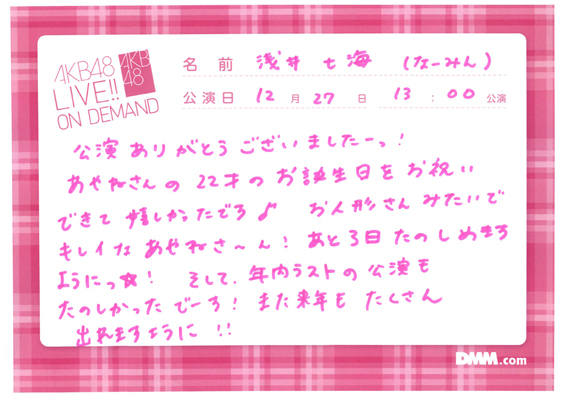 AKB48
LIVE!!
ON DEMAND
AKB
48
名前 浅井七海 (なーみん)
公演日 12月27日 13:00公演
公演ありがとうございましたーっ!
あやねさんの22才のお誕生日をお祝い
できて嬉しかったでろ♪ お人形さんみたいで
キレイなあやねさ〜ん! あと3日たのしめます
ようにっ☆! そして、年内ラストの公演も
たのしかったでーろ! また来年もたくさん
出れますように!!
DMM.com